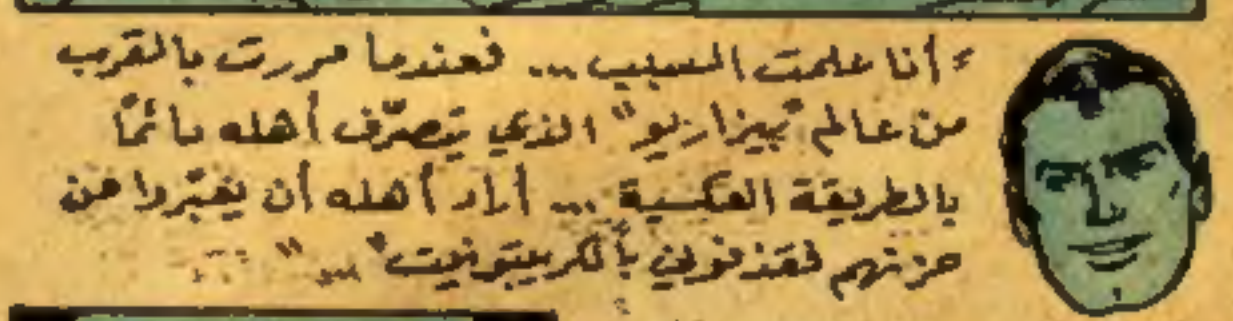 "أنا علمت السبب ... فعندما مررت بالقرب
من عالم "بيزاريو" الذي يتصرّف أهله دائماً
بالطريقة العكسية ... أراد أهله أن يعبّروا عن
حزنهم فقذفوني بالكريبتونيت" ... "